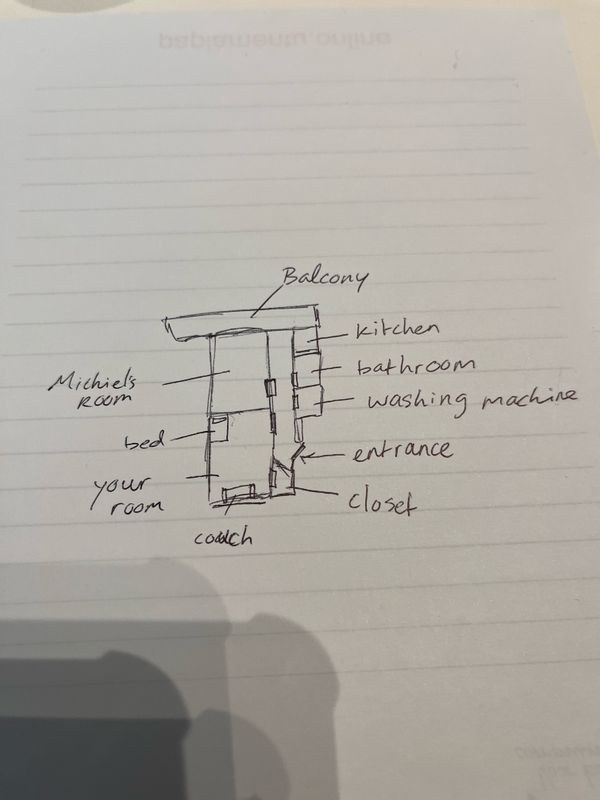 papiamentu.online
Balcony
kitchen
bathroom
Michiel's
room
washing machine
bed
entrance
your
room
closet
couch